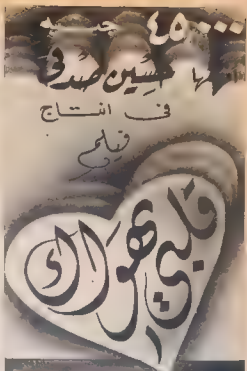 ٤٥٠٠٠ جنيه
انفقها حسين صدقى
فى انتاج
فيلم
قلبى يهواك